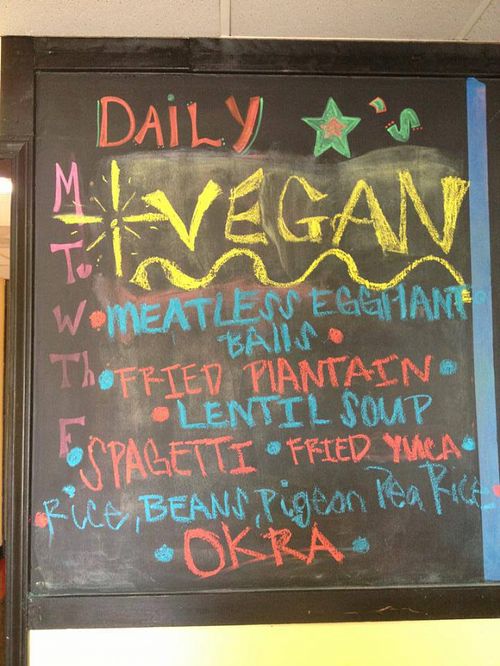 DAILY ★'s
VEGAN
M
Tu
W
Th
F
MEATLESS EGGPLANT
BALLS
FRIED PLANTAIN
LENTIL SOUP
SPAGETTI • FRIED YUCA
Rice, BEANS, Pigeon Pea Rice
OKRA